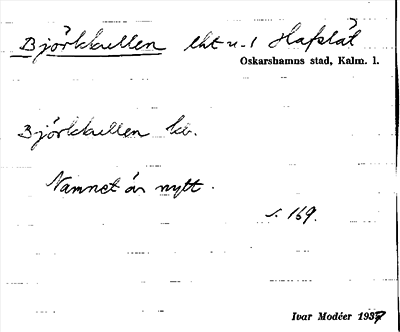 Björkkullen lht u. 1 Hafslät
Oskarshamns stad, Kalm. l.
Björkkullen hb.
Namnet är nytt.
s. 169.
Ivar Modéer 1937